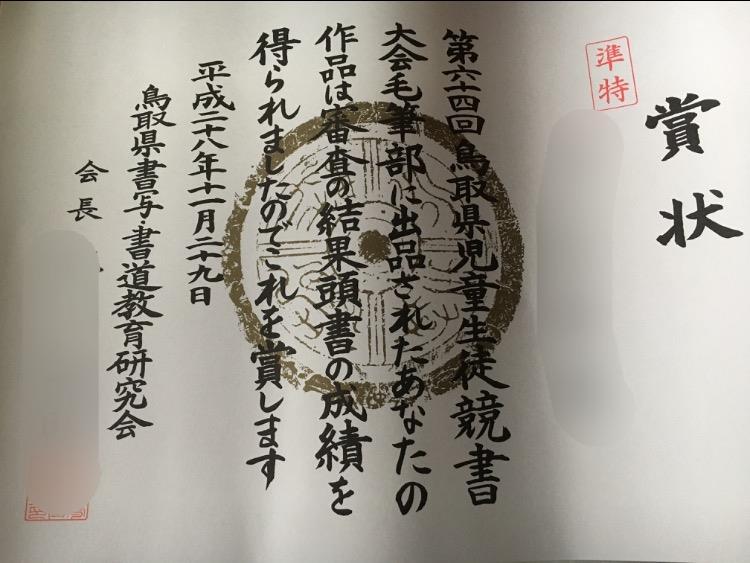 賞状
準特
第六十四回鳥取県児童生徒競書
大会毛筆部に出品されたあなたの
作品は審査の結果頭書の成績を
得られましたのでこれを賞します
平成二十八年十一月二十九日
鳥取県書写・書道教育研究会
会長